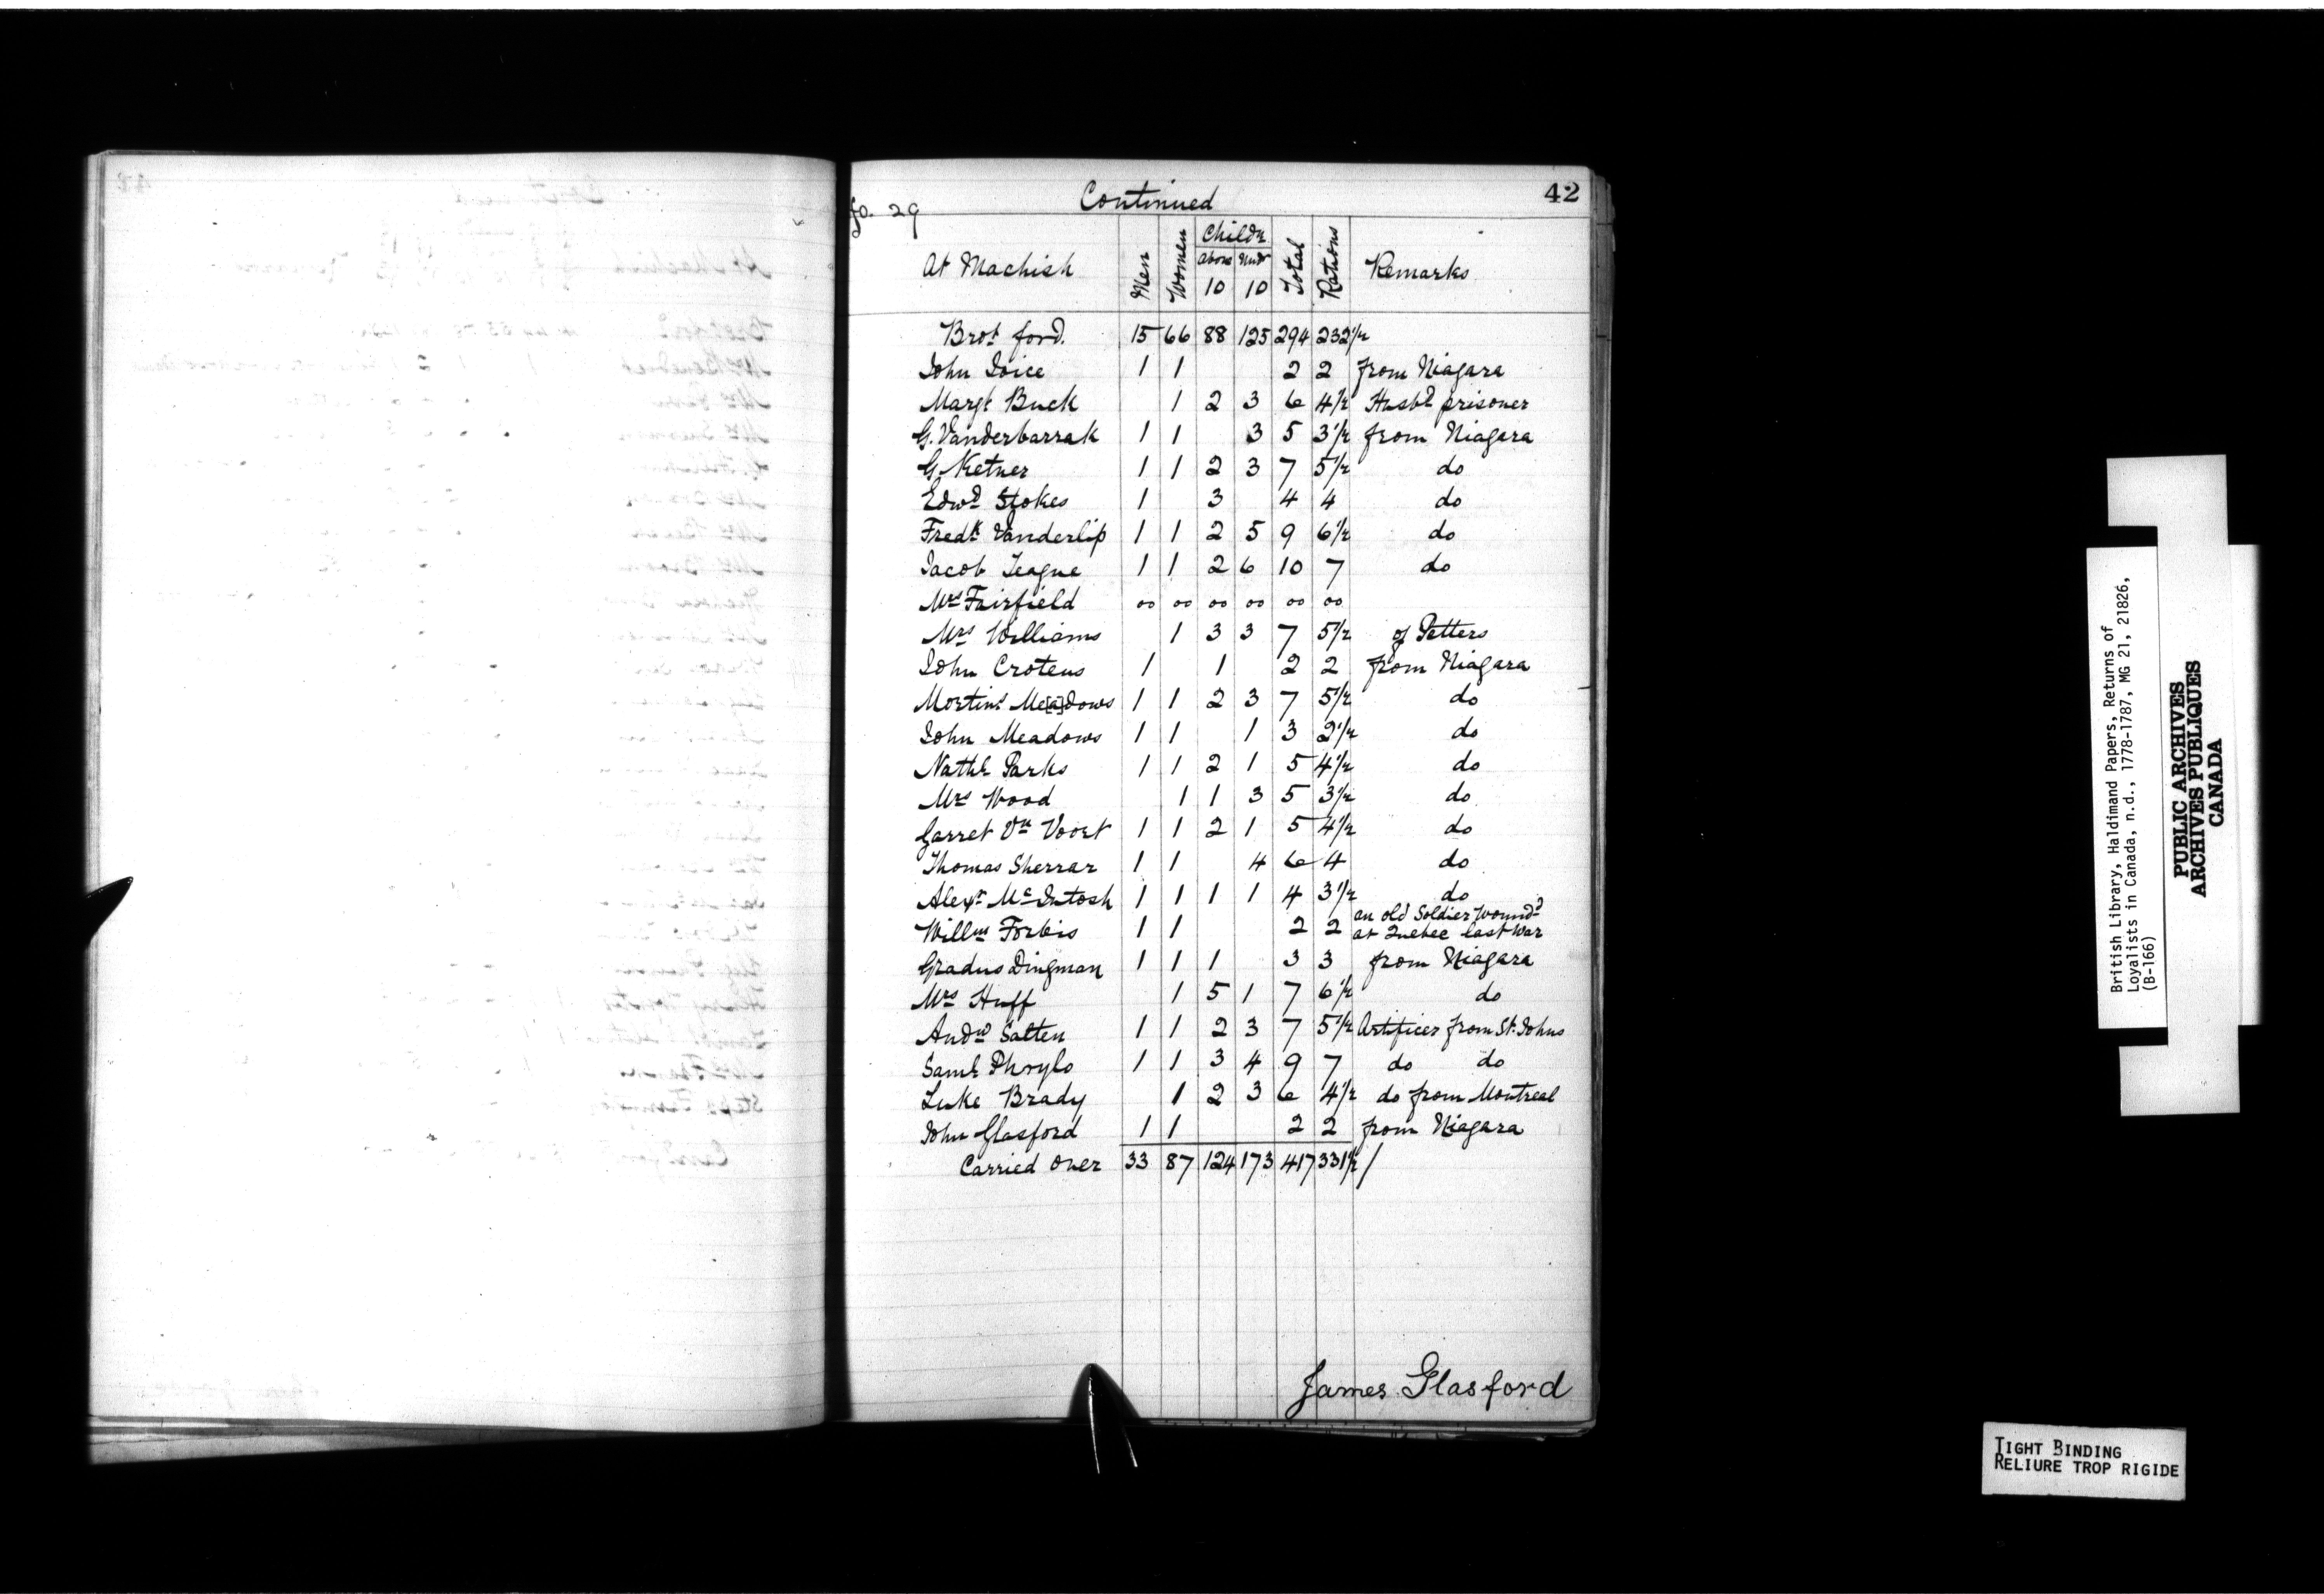 Continued 42
fo. 29
At Machish Men Women Childn above 10 und 10 Total Rations Remarks
Brot ford. 15 66 88 125 294 232 1/2
John Joice 1 1 2 2 from Niagara
Margt Buck 1 2 3 6 4 1/2 Husbd prisoner
G. Vanderbarrak 1 1 3 5 3 1/2 from Niagara
G. Ketner 1 1 2 3 7 5 1/2 do
Edwd Stokes 1 3 4 4 do
Fredk Vanderlip 1 1 2 5 9 6 1/2 do
Jacob Teague 1 1 2 6 10 7 do
Mrs Fairfield oo oo oo oo oo oo
Mrs Williams 1 3 3 7 5 1/2 of Petters
John Croteus 1 1 2 2 from Niagara
Mortins Me[a]dows 1 1 2 3 7 5 1/2 do
John Meadows 1 1 1 3 2 1/2 do
Nathl Parks 1 1 2 1 5 4 1/2 do
Mrs Wood 1 1 3 5 3 1/2 do
Garret Vn Voort 1 1 2 1 5 4 1/2 do
Thomas Sherrar 1 1 4 6 4 do
Alexr McIntosh 1 1 1 1 4 3 1/2 do
Willm Forbis 1 1 2 2 an old Soldier Wound
at Quebec last War
Gradus Dingman 1 1 1 3 3 from Niagara
Mrs Huff 1 5 1 7 6 1/2 do
Andw Salten 1 1 2 3 7 5 1/2 Artificer from St. Johns
Saml Phrylo 1 1 3 4 9 7 do do
Luke Brady 1 2 3 6 4 1/2 do from Montreal
John Glasford 1 1 2 2 from Niagara
Carried over 33 87 124 173 417 331 1/2 /
James Glasford
British Library, Haldimand Papers, Returns of
Loyalists in Canada, n.d., 1778-1787, MG 21, 21826,
(B-166)
PUBLIC ARCHIVES
ARCHIVES PUBLIQUES
CANADA
TIGHT BINDING
RELIURE TROP RIGIDE